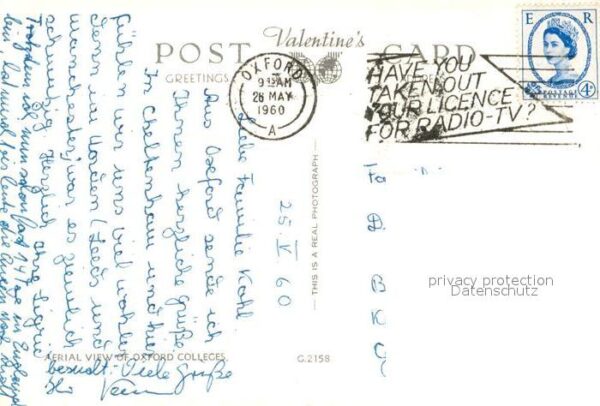 POST Valentine's CARD
GREETINGS
OXFORD
9 15 AM
26 MAY
1960
A
HAVE YOU
TAKEN OUT
YOUR LICENCE
FOR RADIO-TV?
E R
POSTAGE
4D
25. V 60
Liebe Familie Kohl
Aus Oxford sende ich
Ihnen herzliche Grüße
In Cheltenham und hier
fühlen wir uns viel wohler
denn im Norden (Leeds und
Manchester) war es ziemlich
schmutzig. Herzlich Ihre Sigrid
Trotzdem ich nun schon fast 14 Tage in England
bin,
besucht. Viele Grüße
Ihr
THIS IS A REAL PHOTOGRAPH
AERIAL VIEW OF OXFORD COLLEGES.
G.2158
Fa
D
B
K
G
privacy protection
Datenschutz